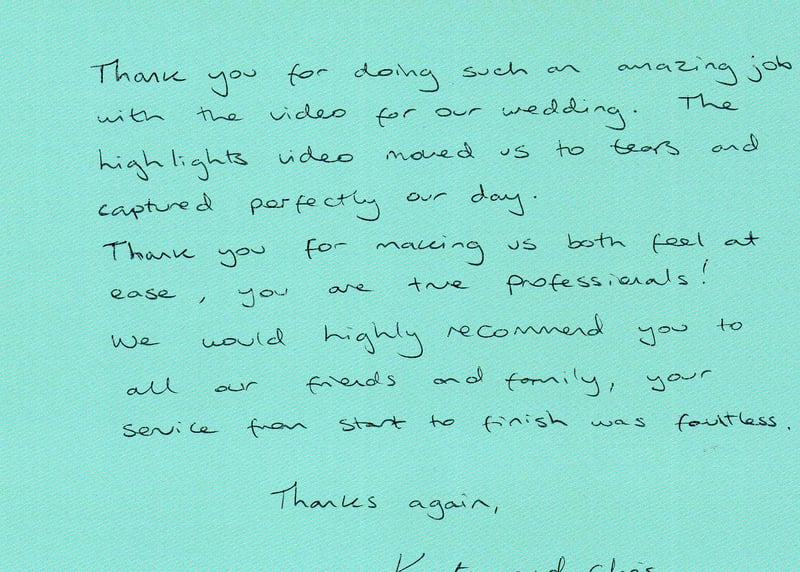 Thank you for doing such an amazing job
with the video for our wedding. The
highlights video moved us to tears and
captured perfectly our day.
Thank you for making us both feel at
ease, you are true professionals!
We would highly recommend you to
all our friends and family, your
service from start to finish was faultless.
Thanks again,
and